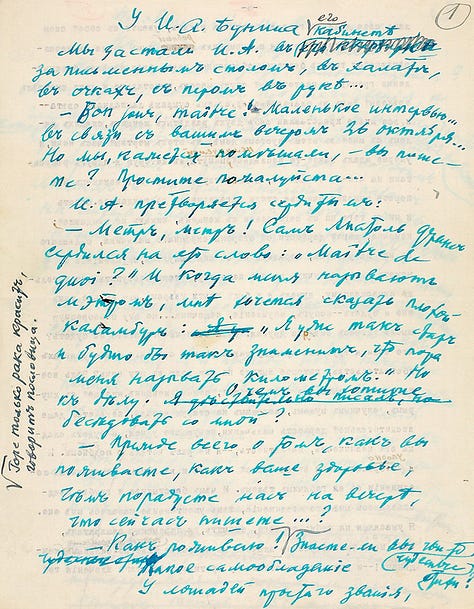 1
У И. А. Бунина
Мы застали И. А. въ его кабинетѣ
за письменнымъ столомъ, въ халатѣ,
въ очкахъ, съ перомъ въ рукѣ...
– Bon jour, maître! Маленькое интервью...
въ связи съ вашимъ вечеромъ 26 октября...
Но мы, кажется, помѣшали, – вы пише-
те? Простите пожалуйста...
И. А. претворяется сердитымъ:
– Мэтръ, мэтръ! Самъ Анатоль Франсъ
сердился на это слово: „Maître de
quoi?" И когда меня называютъ
мэтромъ, мнѣ хочется сказать плохой
каламбуръ: „Я уже такъ старъ
и будто бы такъ знаменитъ, что пора
меня называть километромъ." Но
къ дѣлу. О чемъ вы хотите
бесѣдовать со мной?
– Прежде всего о томъ, какъ вы
поживаете, какъ ваше здоровье,
чѣмъ порадуете насъ на вечерѣ,
что сейчасъ пишете...?
– Какъ поживаю! Знаете-ли вы чьи-то
чудесные стихи:
Какое самообладаніе
У лошадей простого званія,
Горе только рака краситъ,
говоритъ пословица.